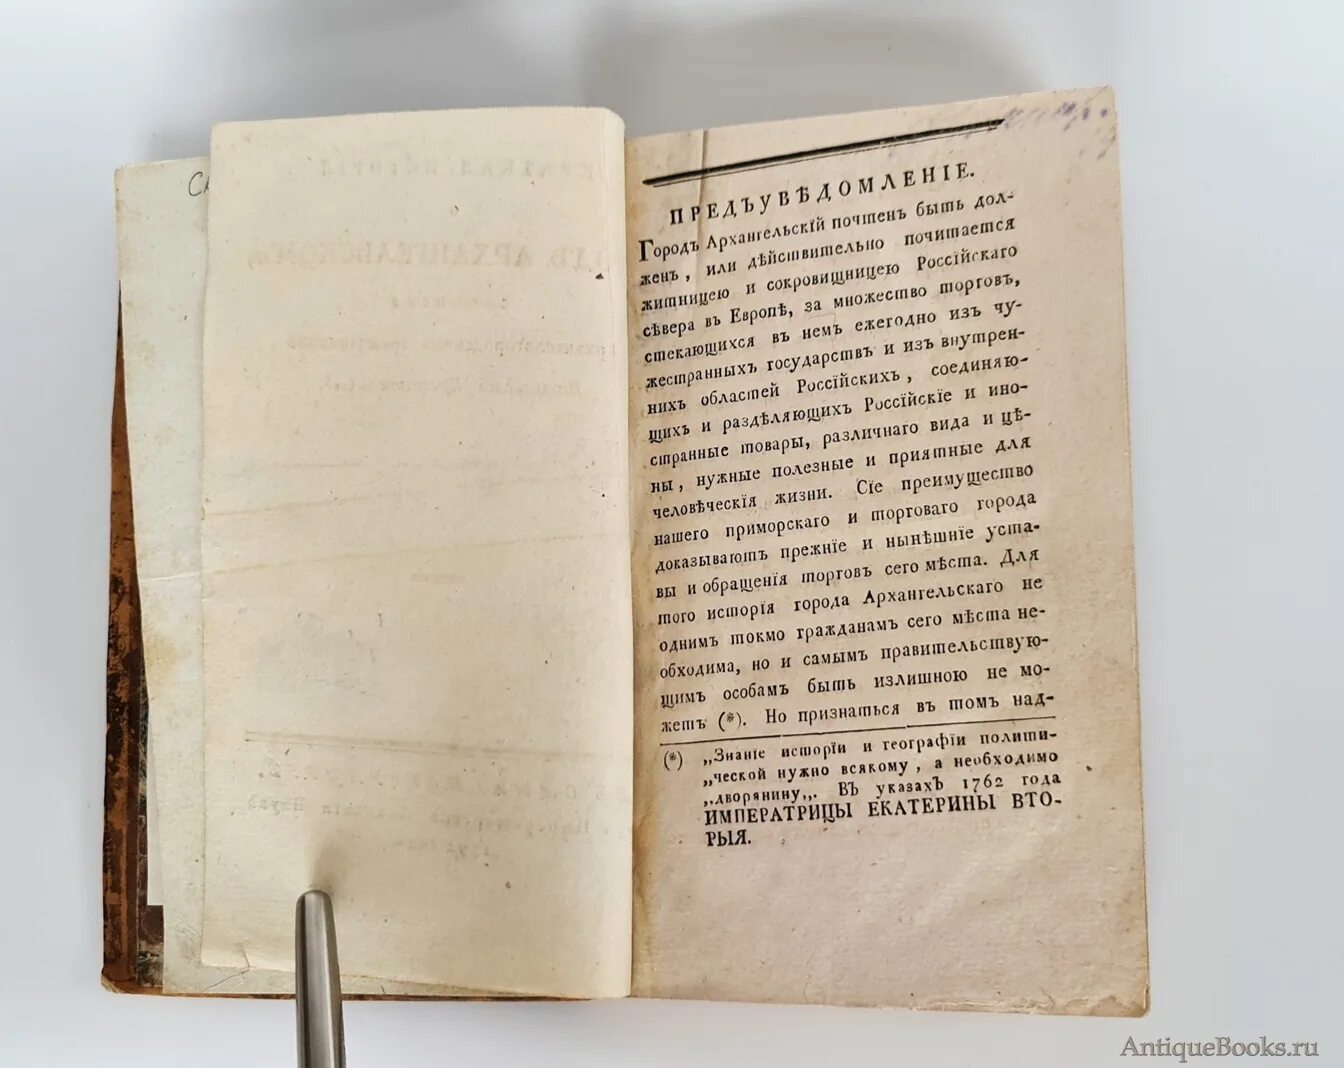 ПРЕДЪУВѢДОМЛЕНІЕ.
Городъ Архангельскій почтенъ быть дол-
женъ, или дѣйствительно почитается
житницею и сокровищницею Россійскаго
сѣвера въ Европѣ, за множество торговъ,
стекающихся въ немъ ежегодно изъ чу-
жестранныхъ государствъ и изъ внутрен-
нихъ областей Россійскихъ, соединяю-
щихъ и раздѣляющихъ Россійскіе и ино-
странные товары, различнаго вида и цѣ-
ны, нужные полезные и приятные для
человѣческія жизни. Сіе преимущество
нашего приморскаго и торговаго города
доказываютъ прежніе и нынѣшніе уста-
вы и обращенія торговъ сего мѣста. Для
того исторія города Архангельскаго не
однимъ токмо гражданамъ сего мѣста не-
обходима, но и самымъ правительствую-
щимъ особамъ быть излишною не мо-
жетъ (*). Но признаться въ томъ над-
(*) „Знаніе исторіи и географіи полити-
„ческой нужно всякому, а необходимо
„дворянину„. Въ указахъ 1762 года
ИМПЕРАТРИЦЫ ЕКАТЕРИНЫ ВТО-
РЫЯ.
AntiqueBooks.ru